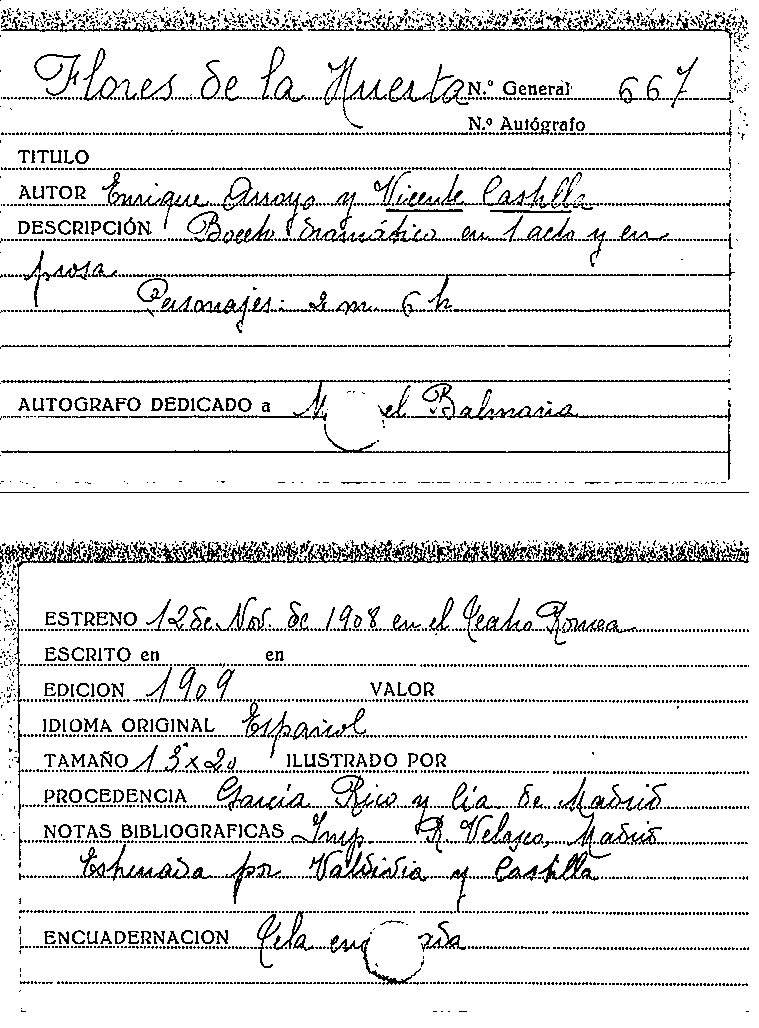 Flores de la Huerta N.º General 667
N.º Autógrafo
TITULO
AUTOR Enrique Arroyo y Vicente Castilla
DESCRIPCIÓN Boceto dramático en 1 acto y en
prosa
Personajes: 2 m. 6 h.
AUTOGRAFO DEDICADO a Balmaria
ESTRENO 12 de Nov. de 1908 en el Teatro Romea
ESCRITO en en
EDICION 1909 VALOR
IDIOMA ORIGINAL Español
TAMAÑO 13 x 20 ILUSTRADO POR
PROCEDENCIA García Rico y Cía de Madrid
NOTAS BIBLIOGRAFICAS Imp. R. Velasco, Madrid
Estrenada por Valdivia y Castilla
ENCUADERNACION Tela